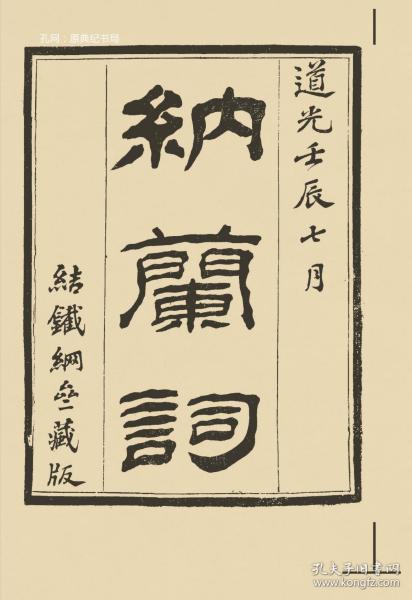 孔网：原典纪书局
道光壬辰七月
納蘭詞
結鐵網亝藏版
孔夫子旧书网
kongfz.com